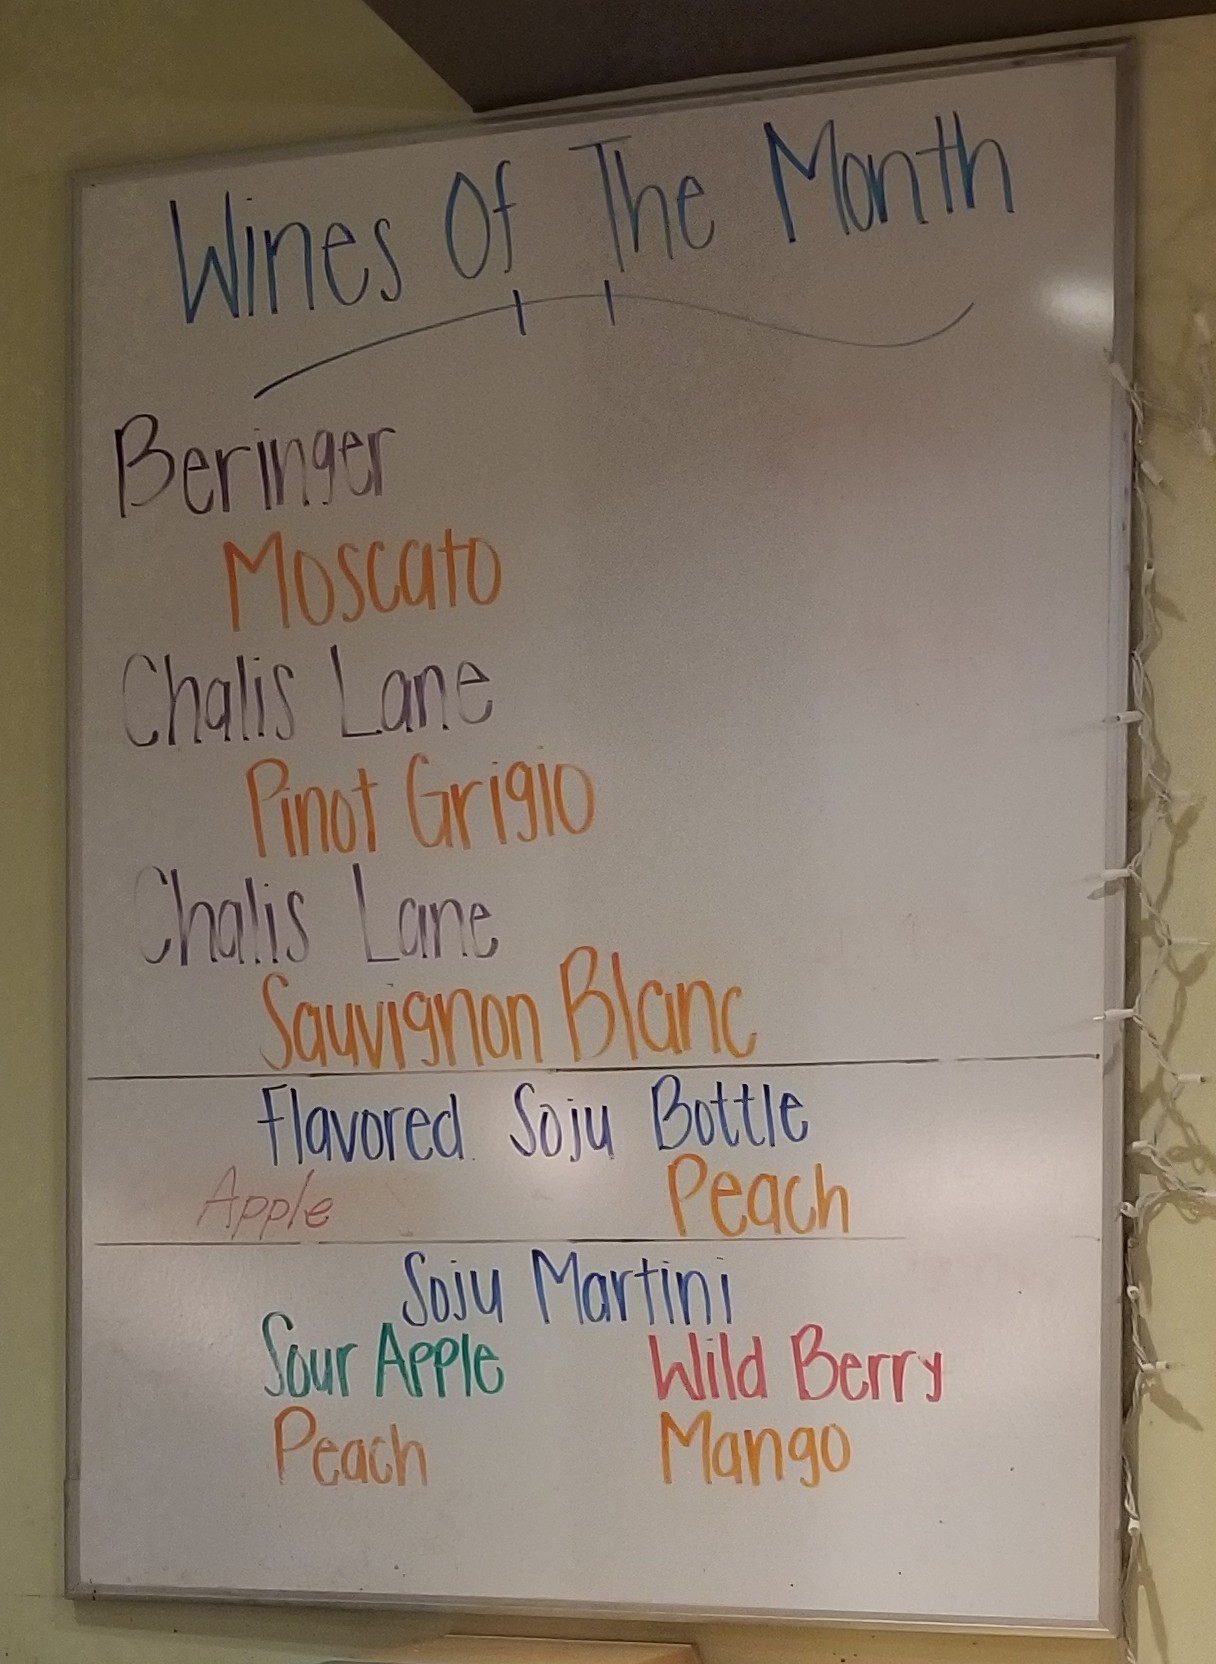 Wines Of The Month
Beringer
Moscato
Chalis Lane
Pinot Grigio
Chalis Lane
Sauvignon Blanc
Flavored Soju Bottle
Apple Peach
Soju Martini
Sour Apple Wild Berry
Peach Mango